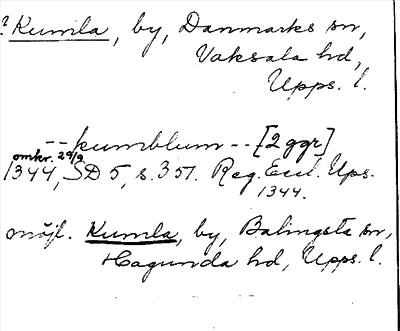 ? Kumla, by, Danmarks sn,
Vaksala hd,
Upps. l.
-- kumblum -- [2 ggr]
omkr. 29/9
1344, SD 5, s. 351. Reg. Eccl. Ups.
1344.
möjl. Kumla, by, Balingsta sn,
Hagunda hd, Upps. l.